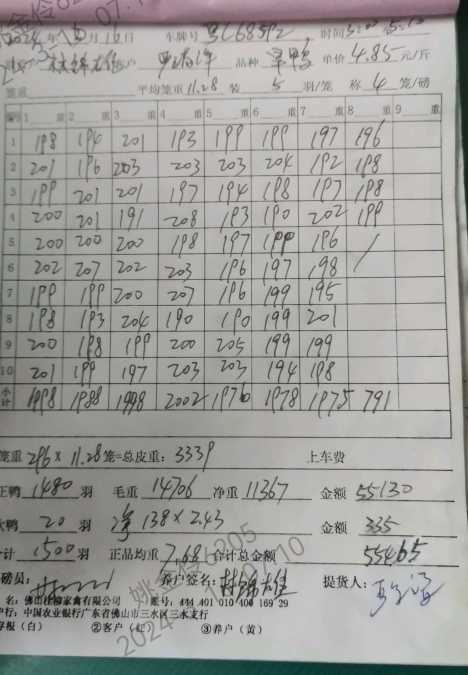 2024年 月16日 车牌号 时间
客户 品种 单价4.85元/斤
笼重 平均笼重11.28 装5羽/笼 称4笼/磅
编号 1 重 2 重 3 重 4 重 5 重 6 重 7 重 8 重 9 重
1 198 194 201 193 199 199 197 196
2 201 196 203 203 203 204 192 198
3 199 201 201 197 194 198 197 198
4 200 201 191 208 193 190 202 199
5 200 200 200 198 197 199 196 /
6 202 207 202 203 196 197 198
7 199 199 200 207 196 199 195
8 198 193 204 190 190 199 201
9 200 198 199 200 205 199 199
10 201 199 197 203 203 194 198
小计 1998 1988 1998 2002 1976 1978 1975 791
笼重296×11.28笼=总皮重：3339 上车费
正鸭1480羽 毛重14706 净重11367 金额55130
鸭20羽 净138×2.43 金额335
合计1500羽 正品均重7.68 合计总金额55465
磅员： 养户签名： 提货人：
名：佛山 家禽有限公司 账号：444 401 010 400 169 29
户行：中国农业银行广东省佛山市三水区三水支行
存根（白） ②客户（红） ③养户（黄）
姚金伶6205
2024